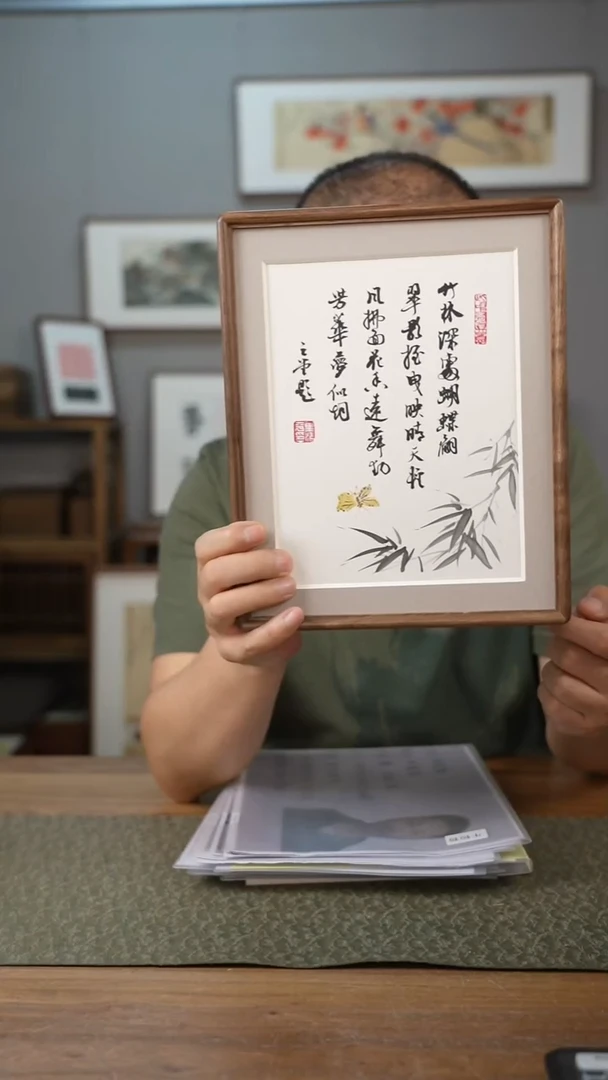 竹林深處蝴蝶翩
翠影搖曳映晴天輕
風拂面花香遠舞動
芳華夢似詞
題